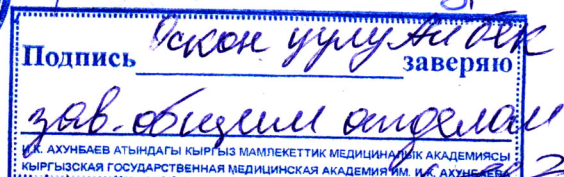 Подпись Оскон уулу Айбек заверяю
зав. общим отделом
И.К. АХУНБАЕВ АТЫНДАГЫ КЫРГЫЗ МАМЛЕКЕТТИК МЕДИЦИНАЛЫК АКАДЕМИЯСЫ
КЫРГЫЗСКАЯ ГОСУДАРСТВЕННАЯ МЕДИЦИНСКАЯ АКАДЕМИЯ ИМ. И.К. АХУНБАЕВА